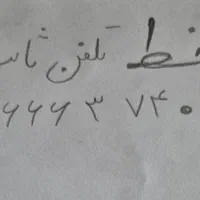 خط تلفن ثابت
۶۶۶۳۷۴۰